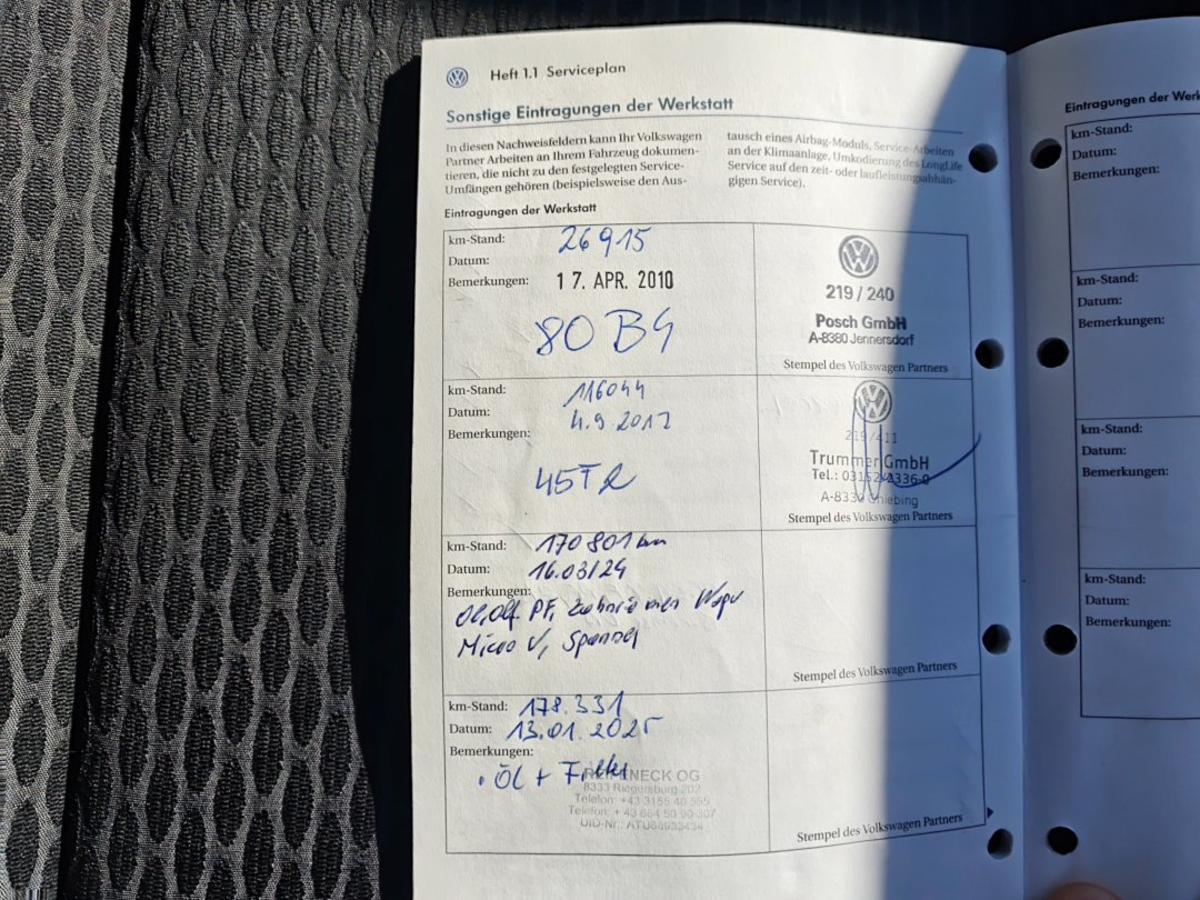 Heft 1.1 Serviceplan
Sonstige Eintragungen der Werkstatt
In diesen Nachweisfeldern kann Ihr Volkswagen
Partner Arbeiten an Ihrem Fahrzeug dokumen-
tieren, die nicht zu den festgelegten Service-
Umfängen gehören (beispielsweise den Aus-
tausch eines Airbag-Moduls, Service-Arbeiten
an der Klimaanlage, Umkodierung des LongLife
Service auf den zeit- oder laufleistungsabhän-
gigen Service).
Eintragungen der Werkstatt
km-Stand: 26915
Datum:
Bemerkungen: 17. APR. 2010
219 / 240
Posch GmbH
A-8380 Jennersdorf
Stempel des Volkswagen Partners
km-Stand: 116044
Datum: 4.9.2017
Bemerkungen:
Trummer GmbH
Stempel des Volkswagen Partners
km-Stand: 170801 km
Datum: 16.03/24
Bemerkungen:
PF,
Micro V,
Stempel des Volkswagen Partners
km-Stand: 178.331
Datum: 13.01.2025
Bemerkungen:
• Öl + Filter
NECK OG
8333 Riegersburg 202
Stempel des Volkswagen Partners
Eintragungen der Werk
km-Stand:
Datum:
Bemerkungen:
km-Stand:
Datum:
Bemerkungen:
km-Stand:
Datum:
Bemerkungen:
km-Stand:
Datum:
Bemerkungen: